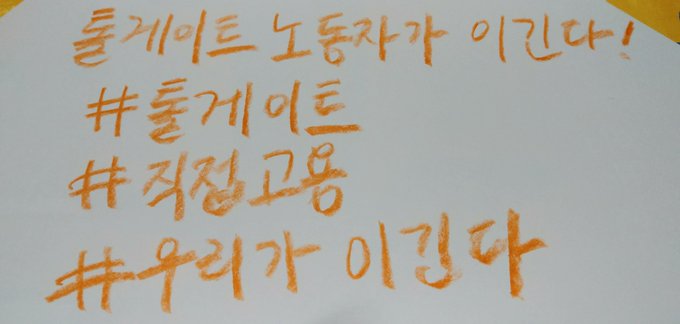 톨게이트 노동자가 이긴다!
#톨게이트
#직접고용
#우리가 이긴다